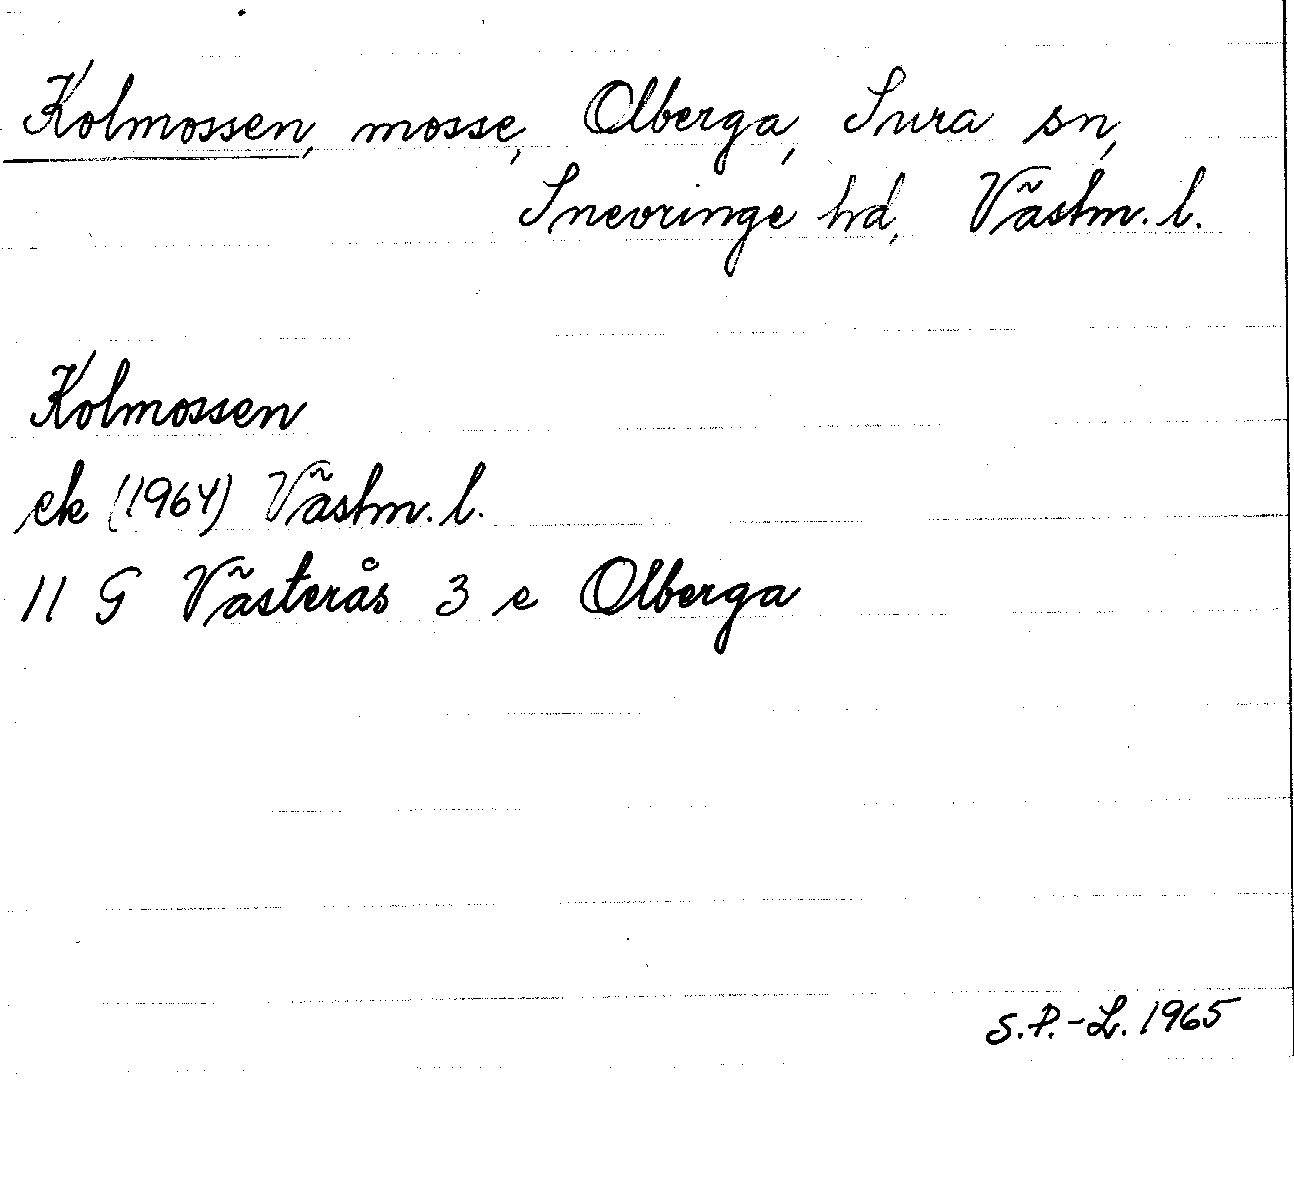 Kolmossen, mosse, Olberga, Sura sn,
Snevringe hd, Västm. l.
Kolmossen
ek (1964) Västm. l.
11 G Västerås 3 e Olberga
S.P.-L. 1965